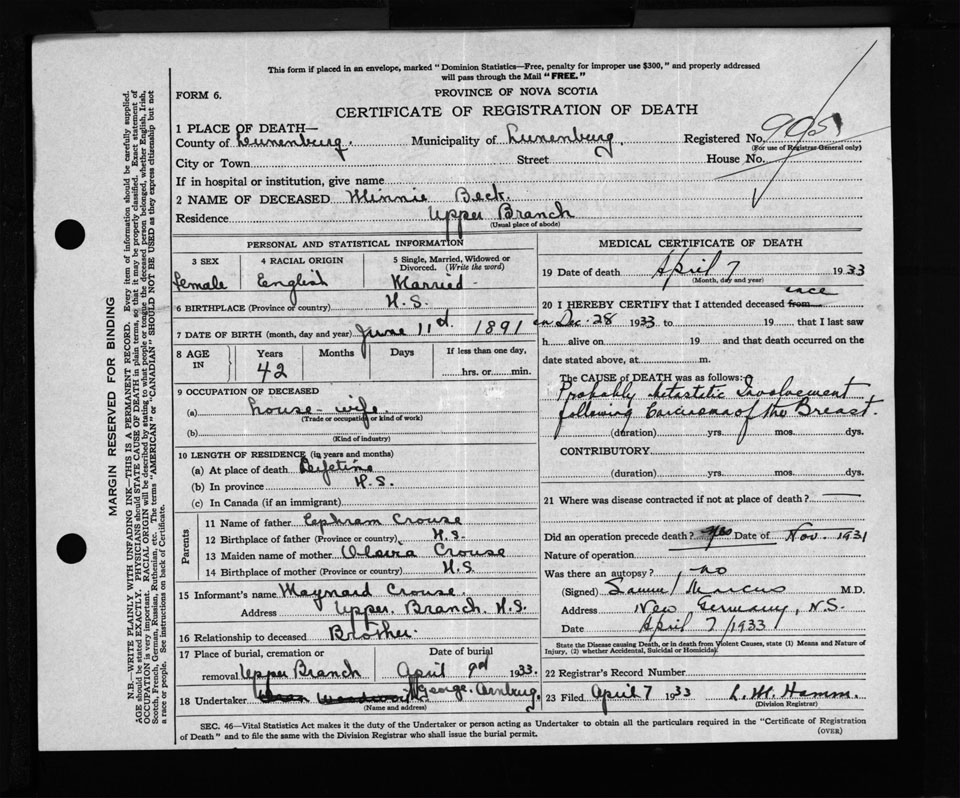 This form if placed in an envelope, marked "Dominion Statistics—Free, penalty for improper use $300," and properly addressed
will pass through the Mail "FREE."
FORM 6.
PROVINCE OF NOVA SCOTIA
CERTIFICATE OF REGISTRATION OF DEATH
1 PLACE OF DEATH—
County of Lunenburg. Municipality of Lunenburg. Registered No. 905
(For use of Registrar General only)
City or Town Street House No.
If in hospital or institution, give name
2 NAME OF DECEASED Minnie Beck.
Residence Upper Branch
(Usual place of abode)
PERSONAL AND STATISTICAL INFORMATION
3 SEX 4 RACIAL ORIGIN 5 Single, Married, Widowed or Divorced. (Write the word)
female English Married
6 BIRTHPLACE (Province or country) N.S.
7 DATE OF BIRTH (month, day and year) June 11d. 1891
8 AGE IN Years Months Days If less than one day,
42 hrs. or min.
9 OCCUPATION OF DECEASED
(a) house-wife.
(Trade or occupation or kind of work)
(b)
(Kind of industry)
10 LENGTH OF RESIDENCE (in years and months)
(a) At place of death Lifetime
(b) In province N.S.
(c) In Canada (if an immigrant)
Parents
11 Name of father Ephram Crouse
12 Birthplace of father (Province or country) N.S.
13 Maiden name of mother Crouse
14 Birthplace of mother (Province or country) N.S.
15 Informant's name Maynard Crouse.
Address Upper Branch. N.S.
16 Relationship to deceased Brother.
17 Place of burial, cremation or Date of burial
removal Upper Branch April 9d 1933.
18 Undertaker George.
(Name and address)
MEDICAL CERTIFICATE OF DEATH
19 Date of death April 7 1933
(Month, day and year)
once
20 I HEREBY CERTIFY that I attended deceased from
on Dec. 28 1933 to 19 that I last saw
h alive on 19 and that death occurred on the
date stated above, at m.
The CAUSE of DEATH was as follows:
Probably Metastatic Involvement
following Carcinoma of the Breast.
(duration) yrs. mos. dys.
CONTRIBUTORY
(duration) yrs. mos. dys.
21 Where was disease contracted if not at place of death?
Did an operation precede death? Yes Date of Nov. 1931
Nature of operation
Was there an autopsy? no
(Signed) Marcus M.D.
Address New Germany, N.S.
Date April 7/1933
State the Disease causing Death, or in death from Violent Causes, state (1) Means and Nature of
Injury, (2) whether Accidental, Suicidal or Homicidal.
22 Registrar's Record Number
23 Filed April 7 1933 L. M. Hamm.
(Division Registrar)
SEC. 46—Vital Statistics Act makes it the duty of the Undertaker or person acting as Undertaker to obtain all the particulars required in the "Certificate of Registration
of Death" and to file the same with the Division Registrar who shall issue the burial permit.
(OVER)
MARGIN RESERVED FOR BINDING
N.B.—WRITE PLAINLY WITH UNFADING INK—THIS IS A PERMANENT RECORD. Every item of information should be carefully supplied.
AGE should be stated EXACTLY. PHYSICIANS should STATE CAUSE OF DEATH in plain terms, so that it may be properly classified. Exact statement of
OCCUPATION is very important. RACIAL ORIGIN will be described by stating to what people or tongue the deceased person belonged, whether English, Irish,
Scotch, French, German, Russian, Ruthenian, etc. The terms "AMERICAN" or "CANADIAN" SHOULD NOT BE USED as they express citizenship but not
a race or people. See instructions on back of Certificate.